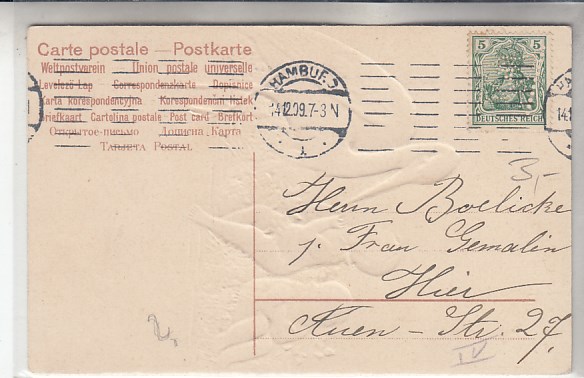 Carte postale — Postkarte
Weltpostverein — Union postale universelle
Levelező-Lap Correspondenzkarte Dopisnice
Karta korespondencyjna Korespondencni listek
Briefkaart Cartolina postale Post card Brefkort
Открытое-письмо Дописна Карта
TARJETA POSTAL
HAMBURG
14.12.09.7-8 N
1.
5 5
DEUTSCHES REICH
14.1
3,-
Herrn Boelicke
u. Frau Gemalin
Hier
Auen-Str. 27.
IV